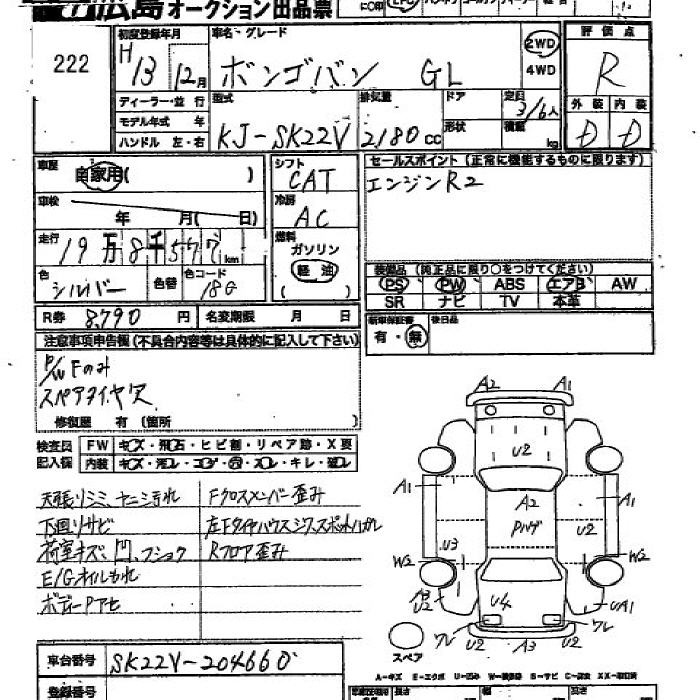 広島オークション出品票
222
初度登録年月
H13 12月
車名・グレード
ボンゴバン GL
2WD
4WD
評価点
R
ディーラー・並行
モデル年式 年
ハンドル 左・右
型式
KJ-SK22V
排気量
2180cc
ドア
形状
定員
3/6人
積載
kg
外装 内装
D D
車歴
自家用(
)
シフト
CAT
セールスポイント(正常に機能するものに限ります)
エンジンR2
車検
年 月( 日)
冷房
AC
走行
19万8千577km
燃料
ガソリン
軽油
色
シルバー
色替
色コード
18G
装備品(純正品に限り○をつけてください)
PS PW ABS エアB AW
SR ナビ TV 本革
R券 8,790 円
名変期限 月 日
新車保証書
有・無
後日品
注意事項申告報(不具合内容等は具体的に記入して下さい)
P/W Fのみ
スペアタイヤ欠
修復歴 有(箇所
検査員
記入欄
FW キズ・飛石・ヒビ割・リペア跡・X要
内装 キズ・汚レ・コゲ・穴・スレ・キレ・破レ
天張りシミ、ヤニ汚れ
Fクロスメンバー歪み
下回りサビ
左Fタイヤハウスジワ、スポットハガレ
荷室キズ、凹、フショク
Rフロア歪み
E/Gオイルもれ
ボディーPアセ
A2 A1
U2
A1 A2 A1
Pルーフ
U3 U2
W2 W2
U2 U4 UA1
ワレ U2 A3 U2 ワレ
スペア
A-キズ E-エクボ U-凹み
車台番号
SK22V-204660
登録番号